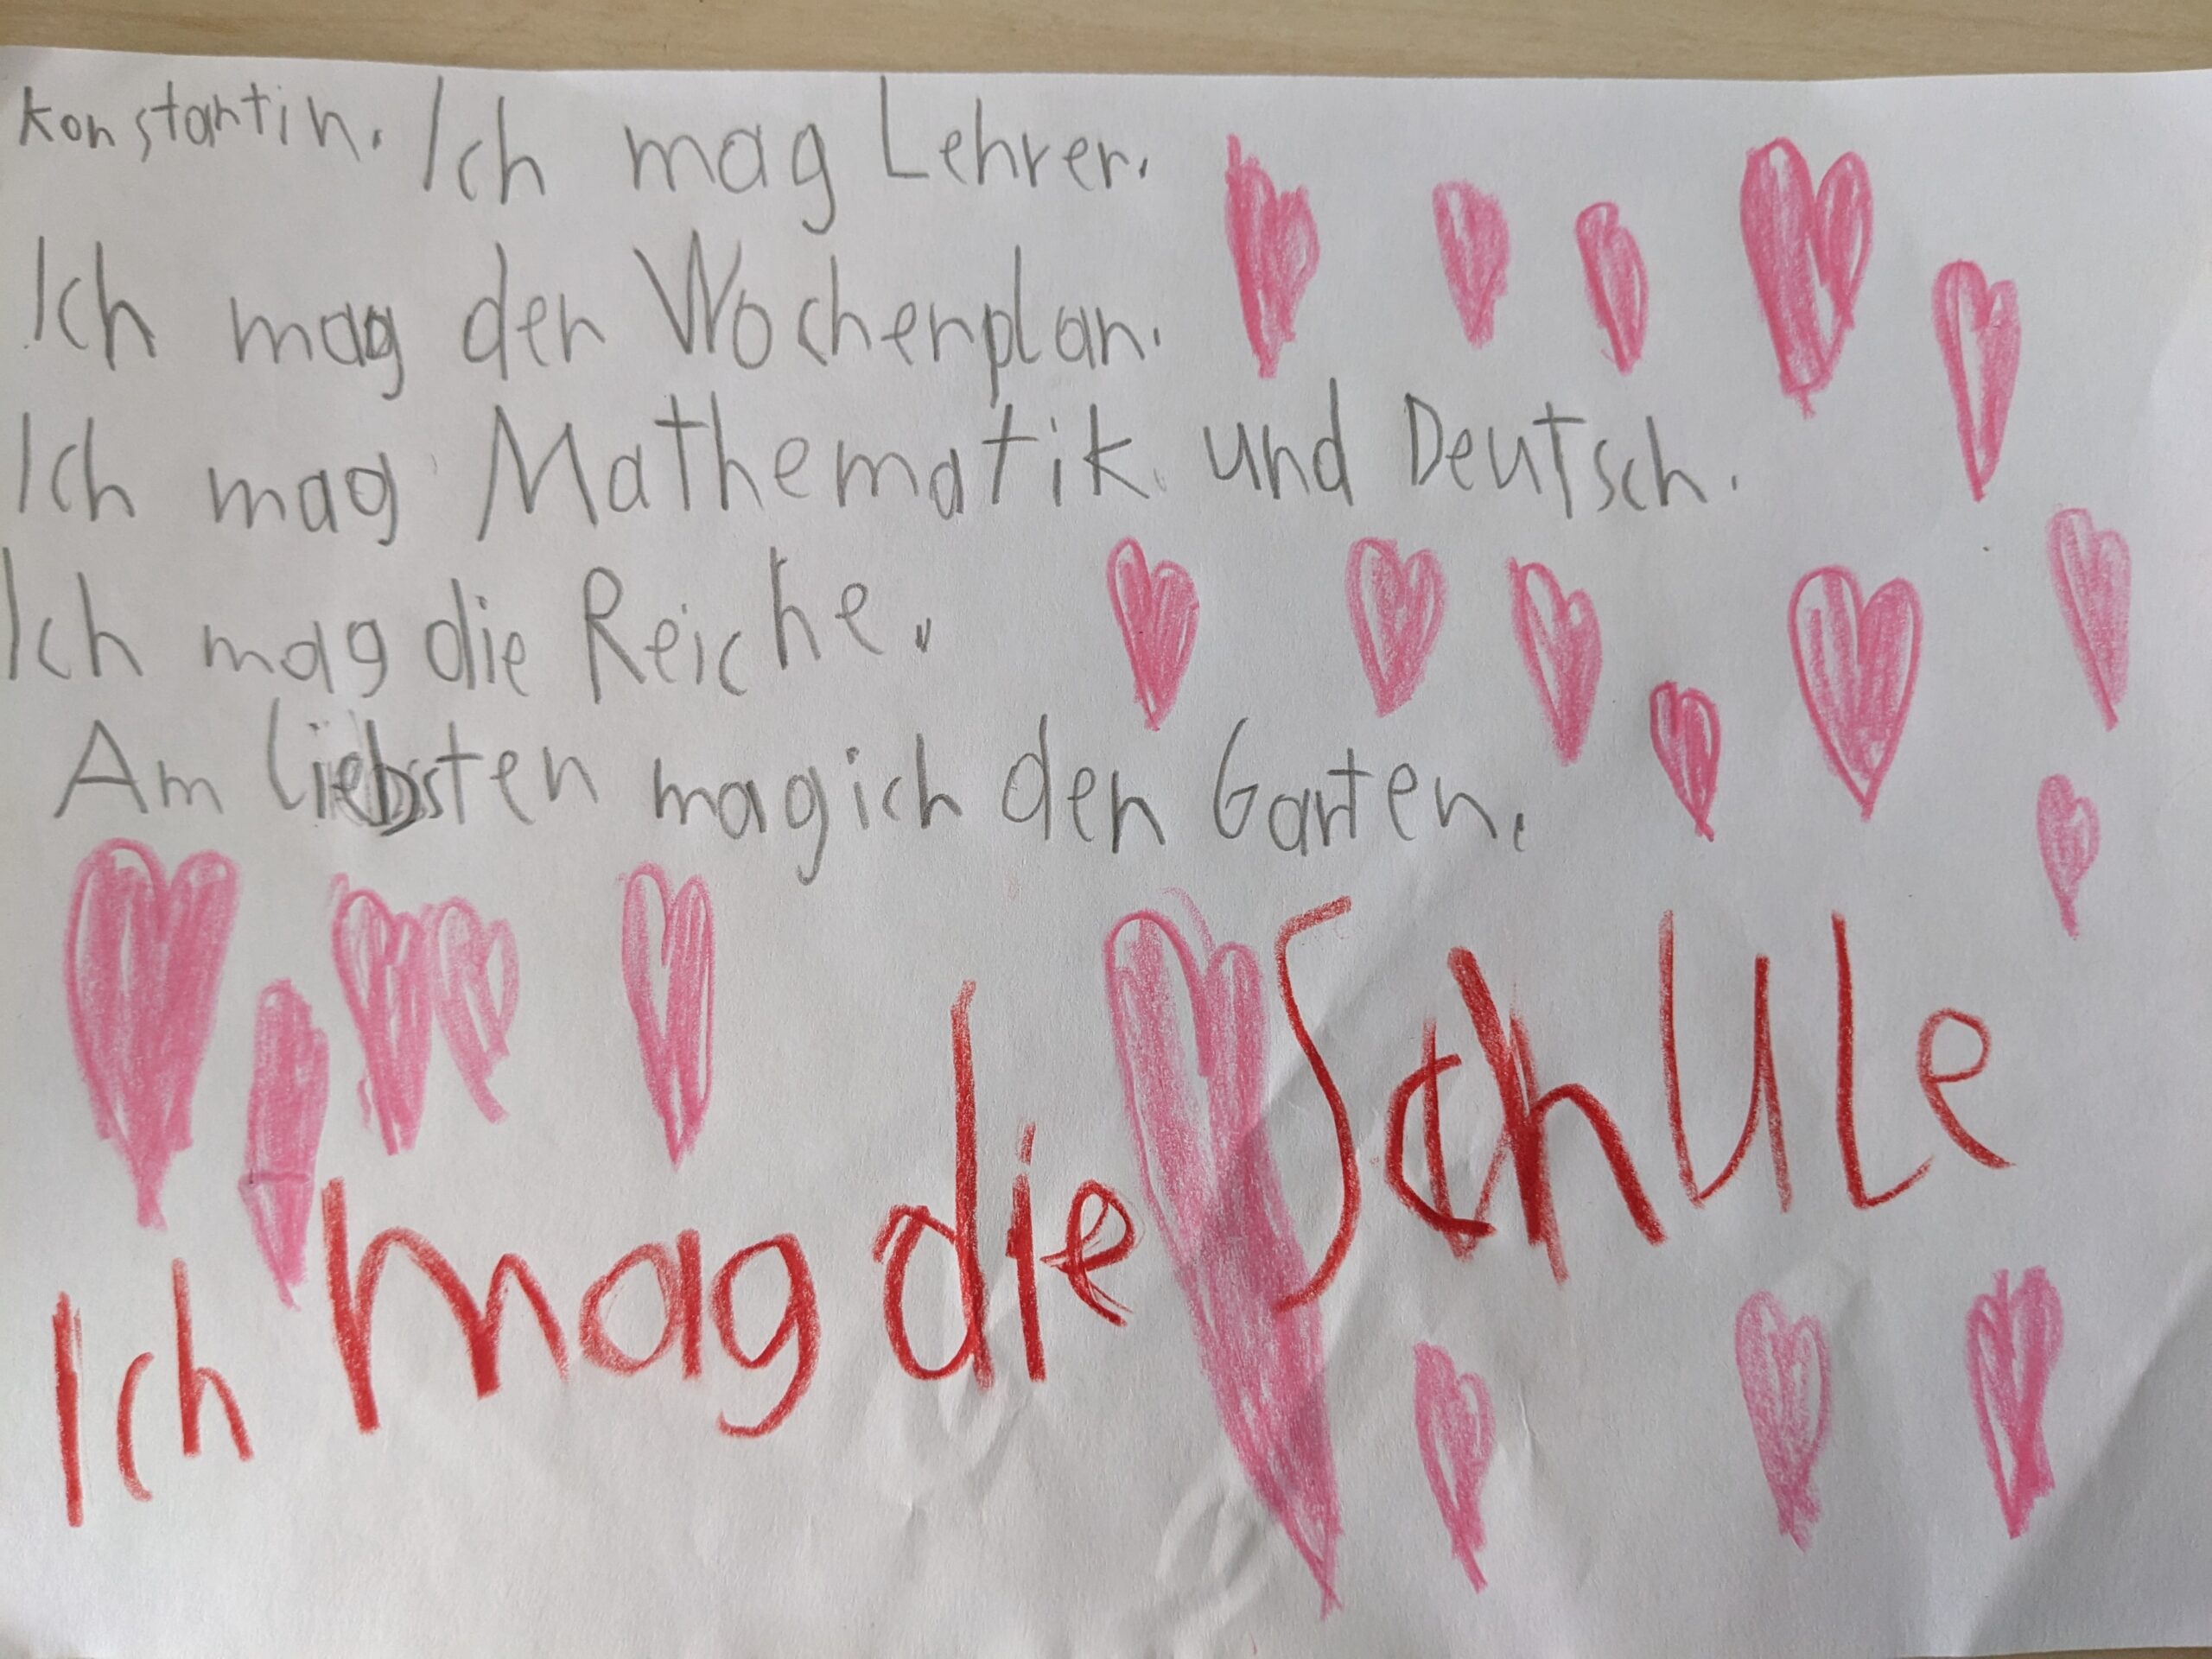 Konstantin. Ich mag Lehrer.
Ich mag den Wochenplan.
Ich mag Mathematik und Deutsch.
Ich mag die Reiche.
Am liebsten mag ich den Garten.
Ich mag die Schule